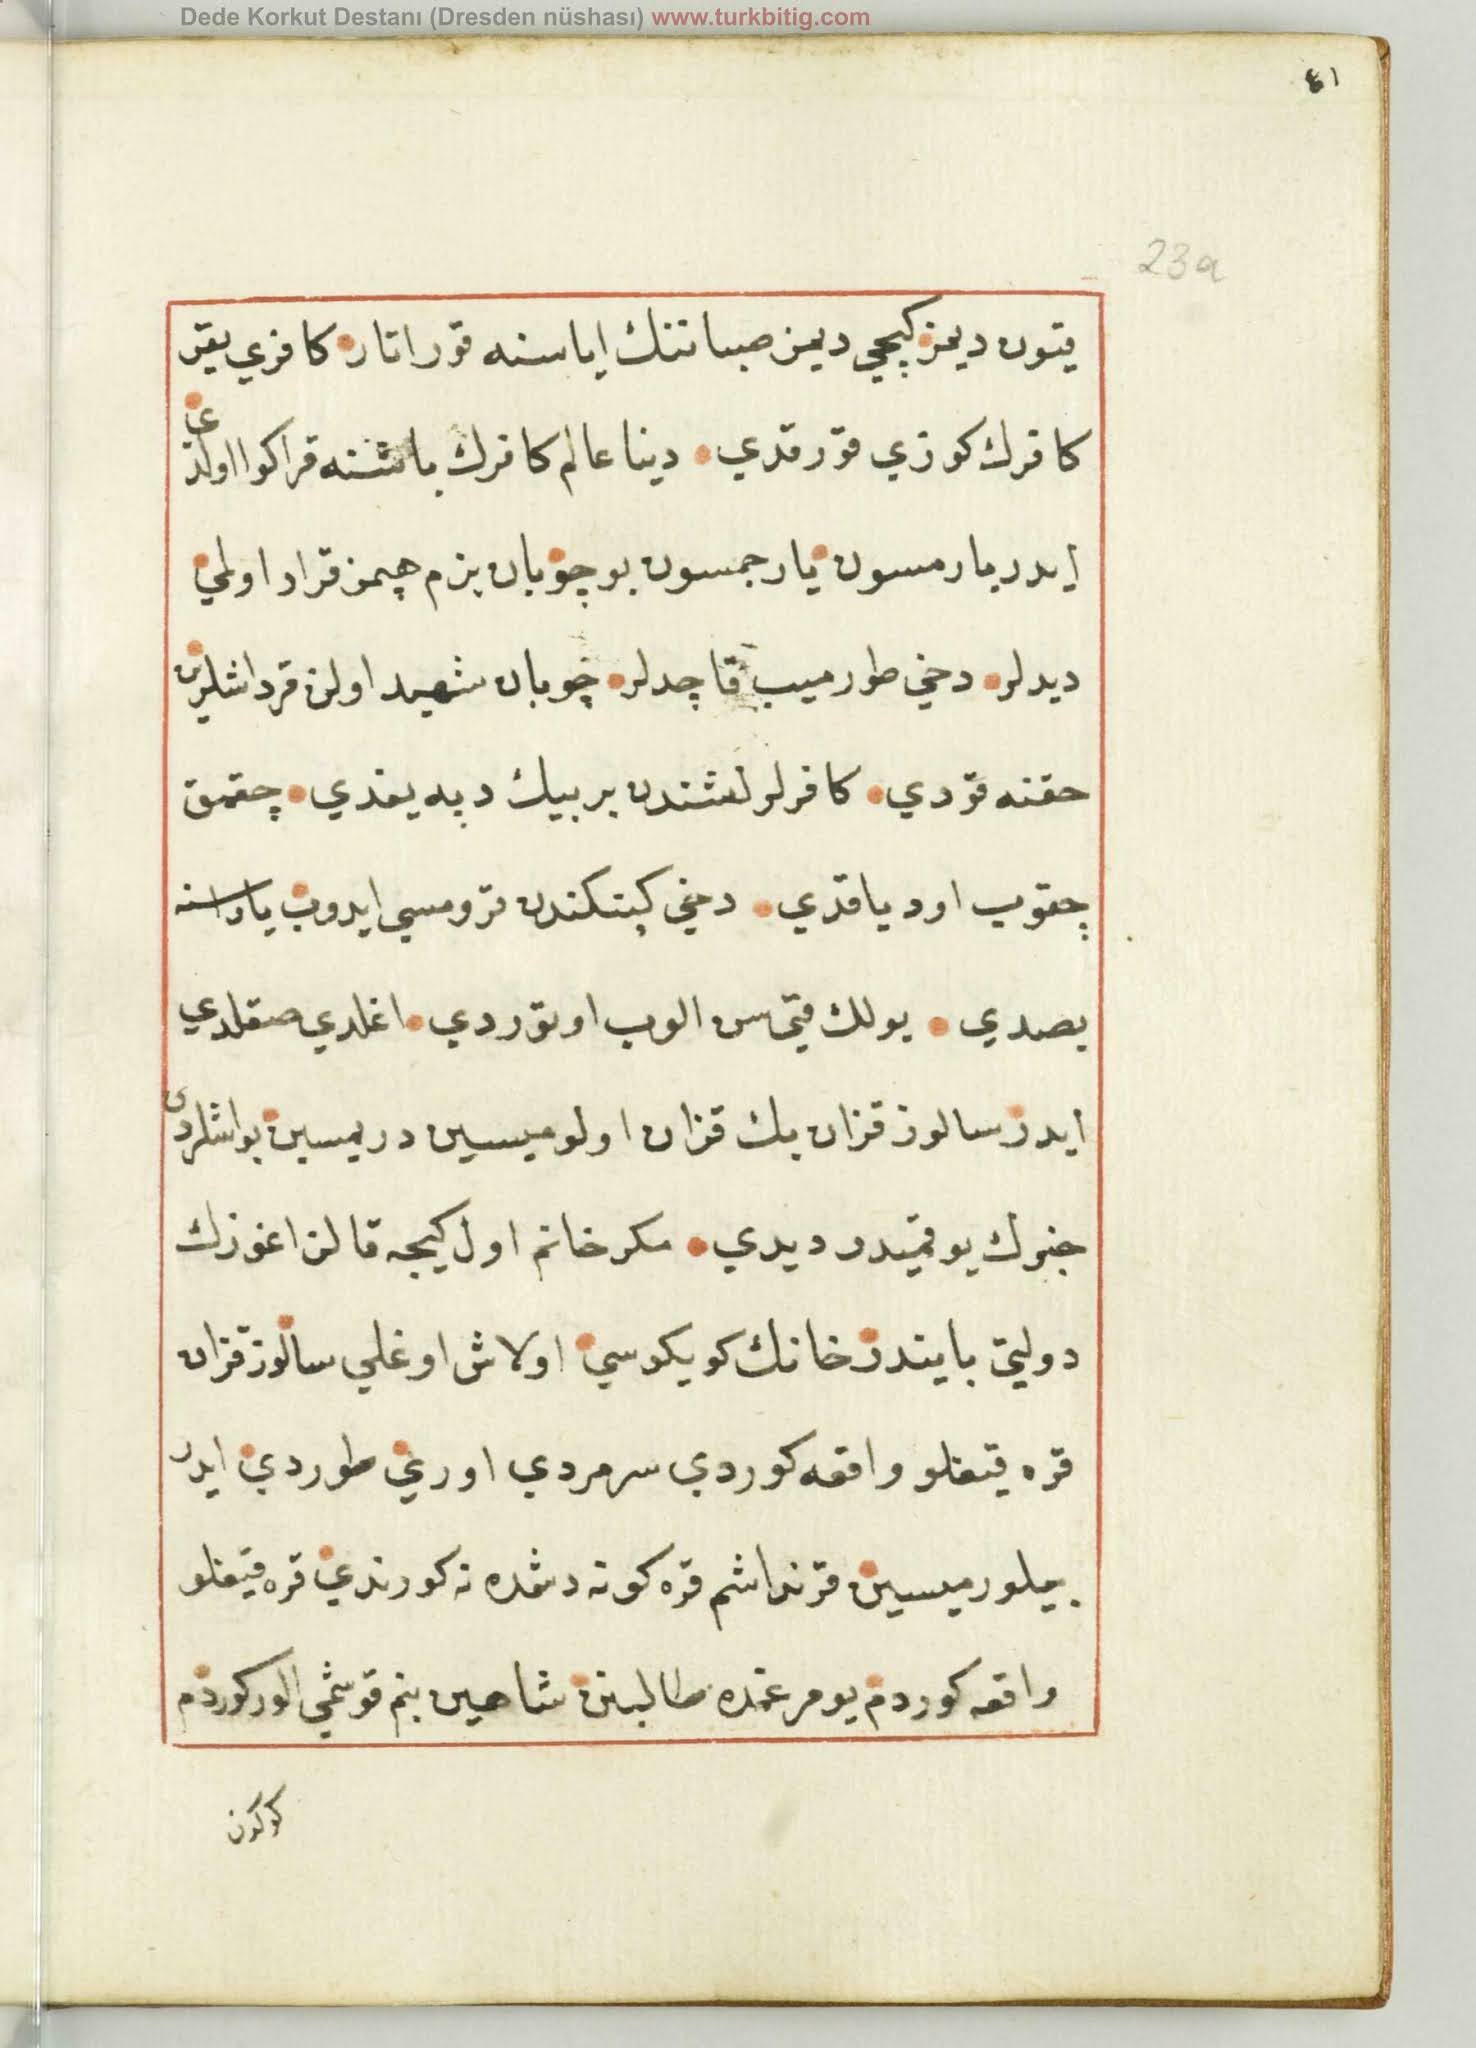 Dede Korkut Destanı (Dresden nüshası) www.turkbitig.com
٤١
23a
قيون ديمز كيچي ديمز صپاننك اياسنه قور اتار كافري يقر
كافرك كوزي قورقدي دنيا عالم كافرك باشنه قراكوا اولدي
ايدر يارمسون يارچمسون بو چوبان بزم هپمز قرار اولمي
ديدلر دخي طورميب قاچدلر چوبان شهيد اولن قرداشلرين
حقنه قودي كافرلر لشندن بر بيك دپه يغدي چقمق
چقوب اود ياقدي دخي كپنكندن قرومسي ايدوب ياراسنه
بصدي يولك قيىسن الوب اوتوردي اغلدي صقلدي
ايدر سالور قزان بك قزان اولوميسين ديريميسين بو اشلردن
خبرك يوقميدر ديدي مكر خانم اول كيجه قالن اغوزك
دولتي بايندر خانك كويكوسي اولاش اوغلي سالور قزان
قره قيغلو واقعه كوردي سرمردي اوري طوردي ايدر
بيلورميسين قرنداشم قره كونه دشمده نه كورندي قره قيغلو
واقعه كوردم يومرغمده طالبنن شاهين بنم قوشمي الور كوردم
كوكون